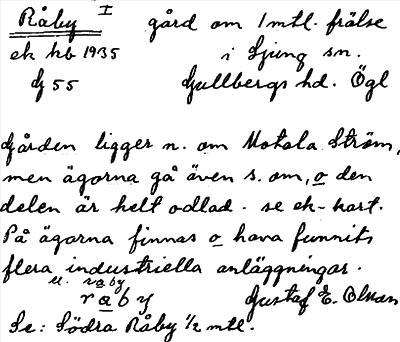 Råby I gård om 1 mtl. frälse
ek kb 1935 i Ljung sn.
G 55 Gullbergs hd. Ögl
Gården ligger n. om Motala Ström,
men ägorna gå även s. om, o den
delen är helt odlad. se ek-kart.
På ägorna finnas o hava funnits
flera industriella anläggningar.
u. råby
råby Gustaf E. Olsson
Se: Södra Råby ½ mtl.